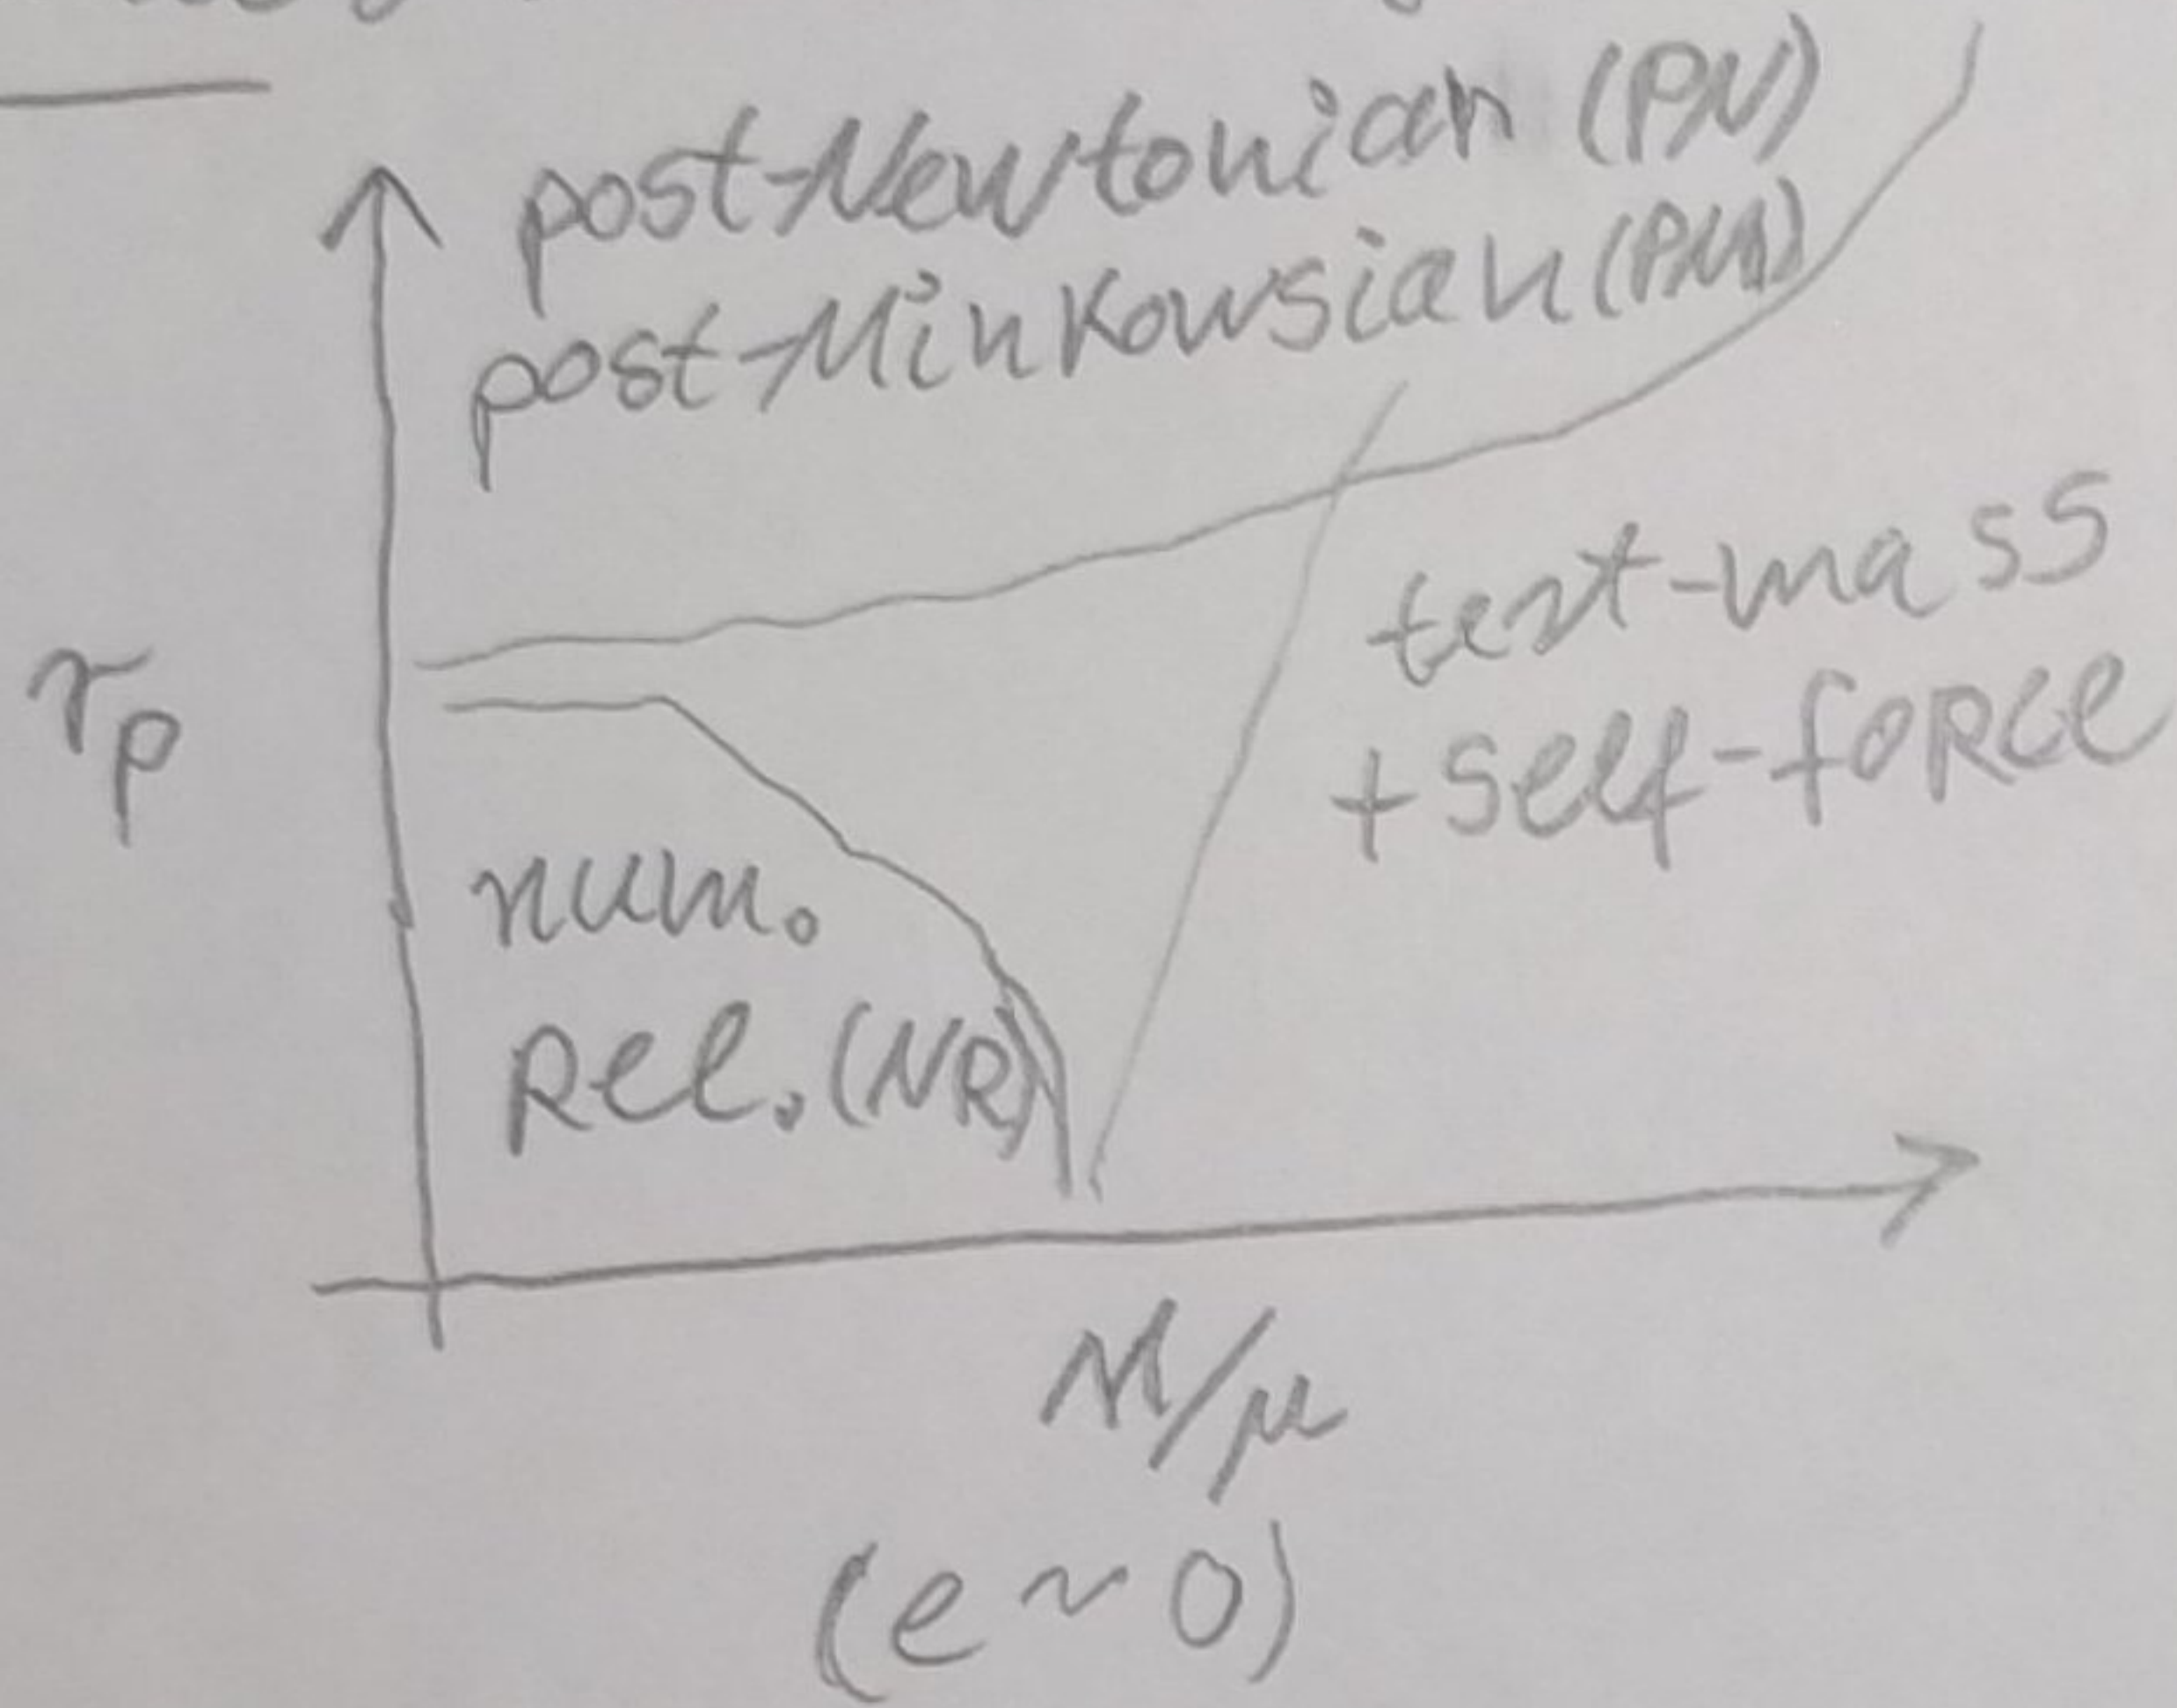 post-Newtonian (PN)
post-Minkowsian (PM)
r_p
test-mass
+ self-force
num.
Rel. (NR)
M/μ
(e ~ 0)